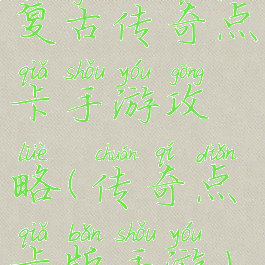 复古传奇点
qiǎ shǒu yóu gōng
卡手游攻
lüè chuán qí diǎn
略(传奇点
qiǎ bǎn shǒu yóu
卡版手游)